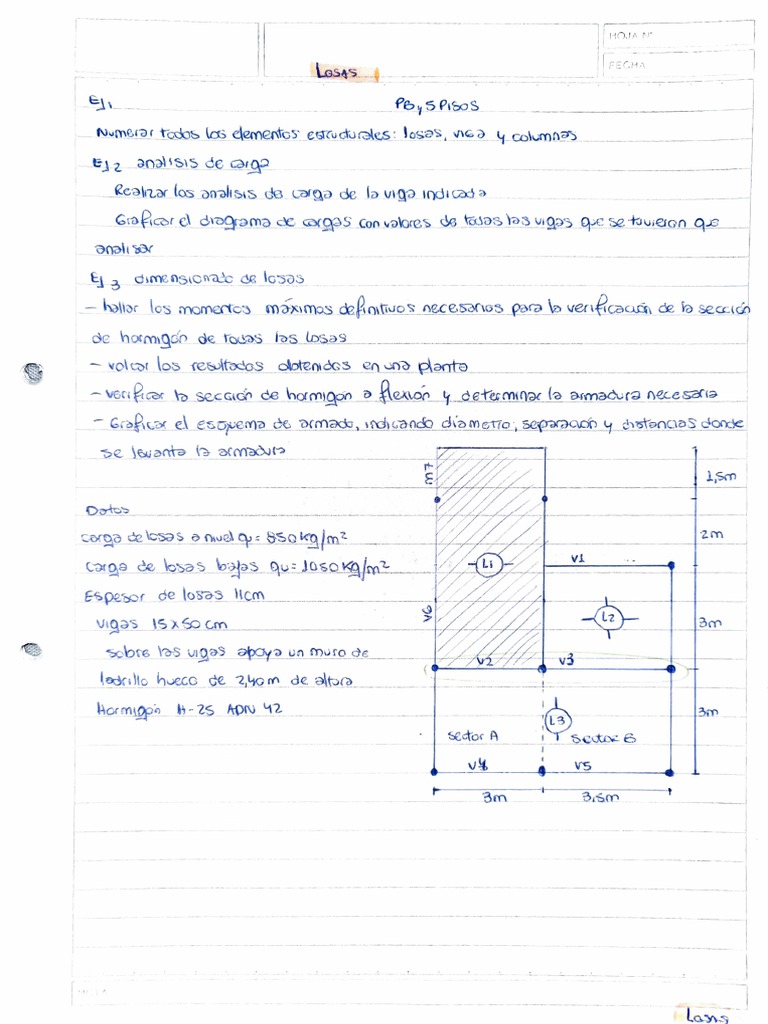 HOJA N°
FECHA
LOSAS
EJ1 PB y 5 PISOS
Numerar todos los elementos estructurales: losas, viga y columnas
EJ2 analisis de carga
Realizar los analisis de carga de la viga indicada
Graficar el diagrama de cargas con valores de todas las vigas que se tuvieron que
analizar
EJ3 dimensionado de losas
- hallar los momentos máximos definitivos necesarios para la verificación de la sección
de hormigón de todas las losas
- volcar los resultados obtenidos en una planta
- verificar la sección de hormigon a flexión y determinar la armadura necesaria
- Graficar el esquema de armado, indicando diametro, separación y distancias donde
se levanta la armadura
Datos
carga de losas a nivel qu = 850 kg/m²
carga de losas bajas qu = 1050 kg/m²
Espesor de losas 11cm
vigas 15 x 50 cm
sobre las vigas apoya un muro de
ladrillo hueco de 2,40 m de altura
Hormigón H-25 ADN 42
V7
1,5m
2m
V1
L1
V6
L2
3m
V2
V3
L3
3m
sector A
sector B
V4
V5
3m
3,5m
Losas